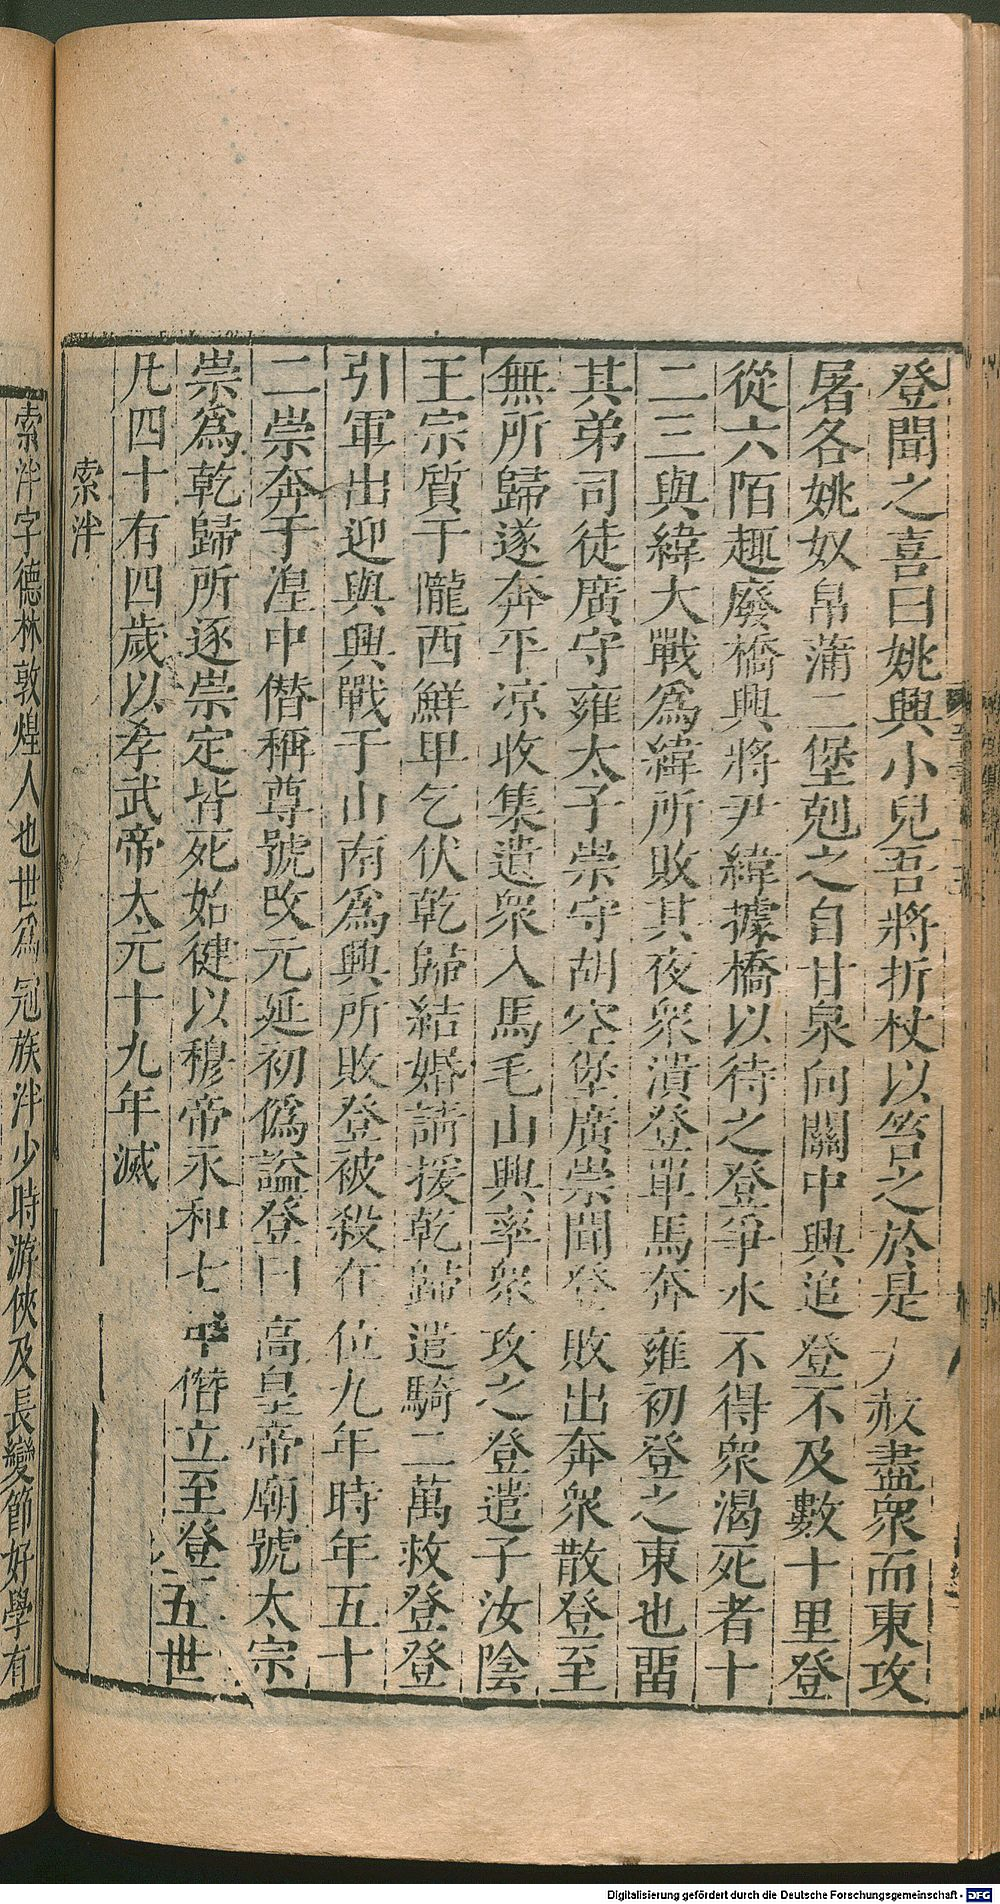 登聞之喜曰姚興小兒吾將折杖以笞之於是大赦盡衆而東攻
屠各姚奴帛蒲二堡剋之自甘泉向關中興追登不及數十里登
從六陌趣廢橋興將尹緯據橋以待之登爭水不得衆渴死者十
二三與緯大戰爲緯所敗其夜衆潰登單馬奔雍初登之東也畱
其弟司徒廣守雍太子崇守胡空堡廣崇聞登敗出奔衆散登至
無所歸遂奔平凉收集遺衆入馬毛山興率衆攻之登遣子汝陰
王宗質于隴西鮮卑乞伏乾歸結婚請援乾歸遣騎二萬救登登
引軍出迎與興戰于山南爲興所敗登被殺在位九年時年五十
二崇奔于湼中僭稱尊號改元延初僞謚登曰高皇帝廟號太宗
崇爲乾歸所逐崇定皆死始健以穆帝永和七年僭立至登五世
凡四十有四歲以孝武帝太元十九年滅
索泮
索泮字德林敦煌人也世爲冠族泮少時游俠及長變節好學有
Digitalisierung gefördert durch die Deutsche Forschungsgemeinschaft - DFG